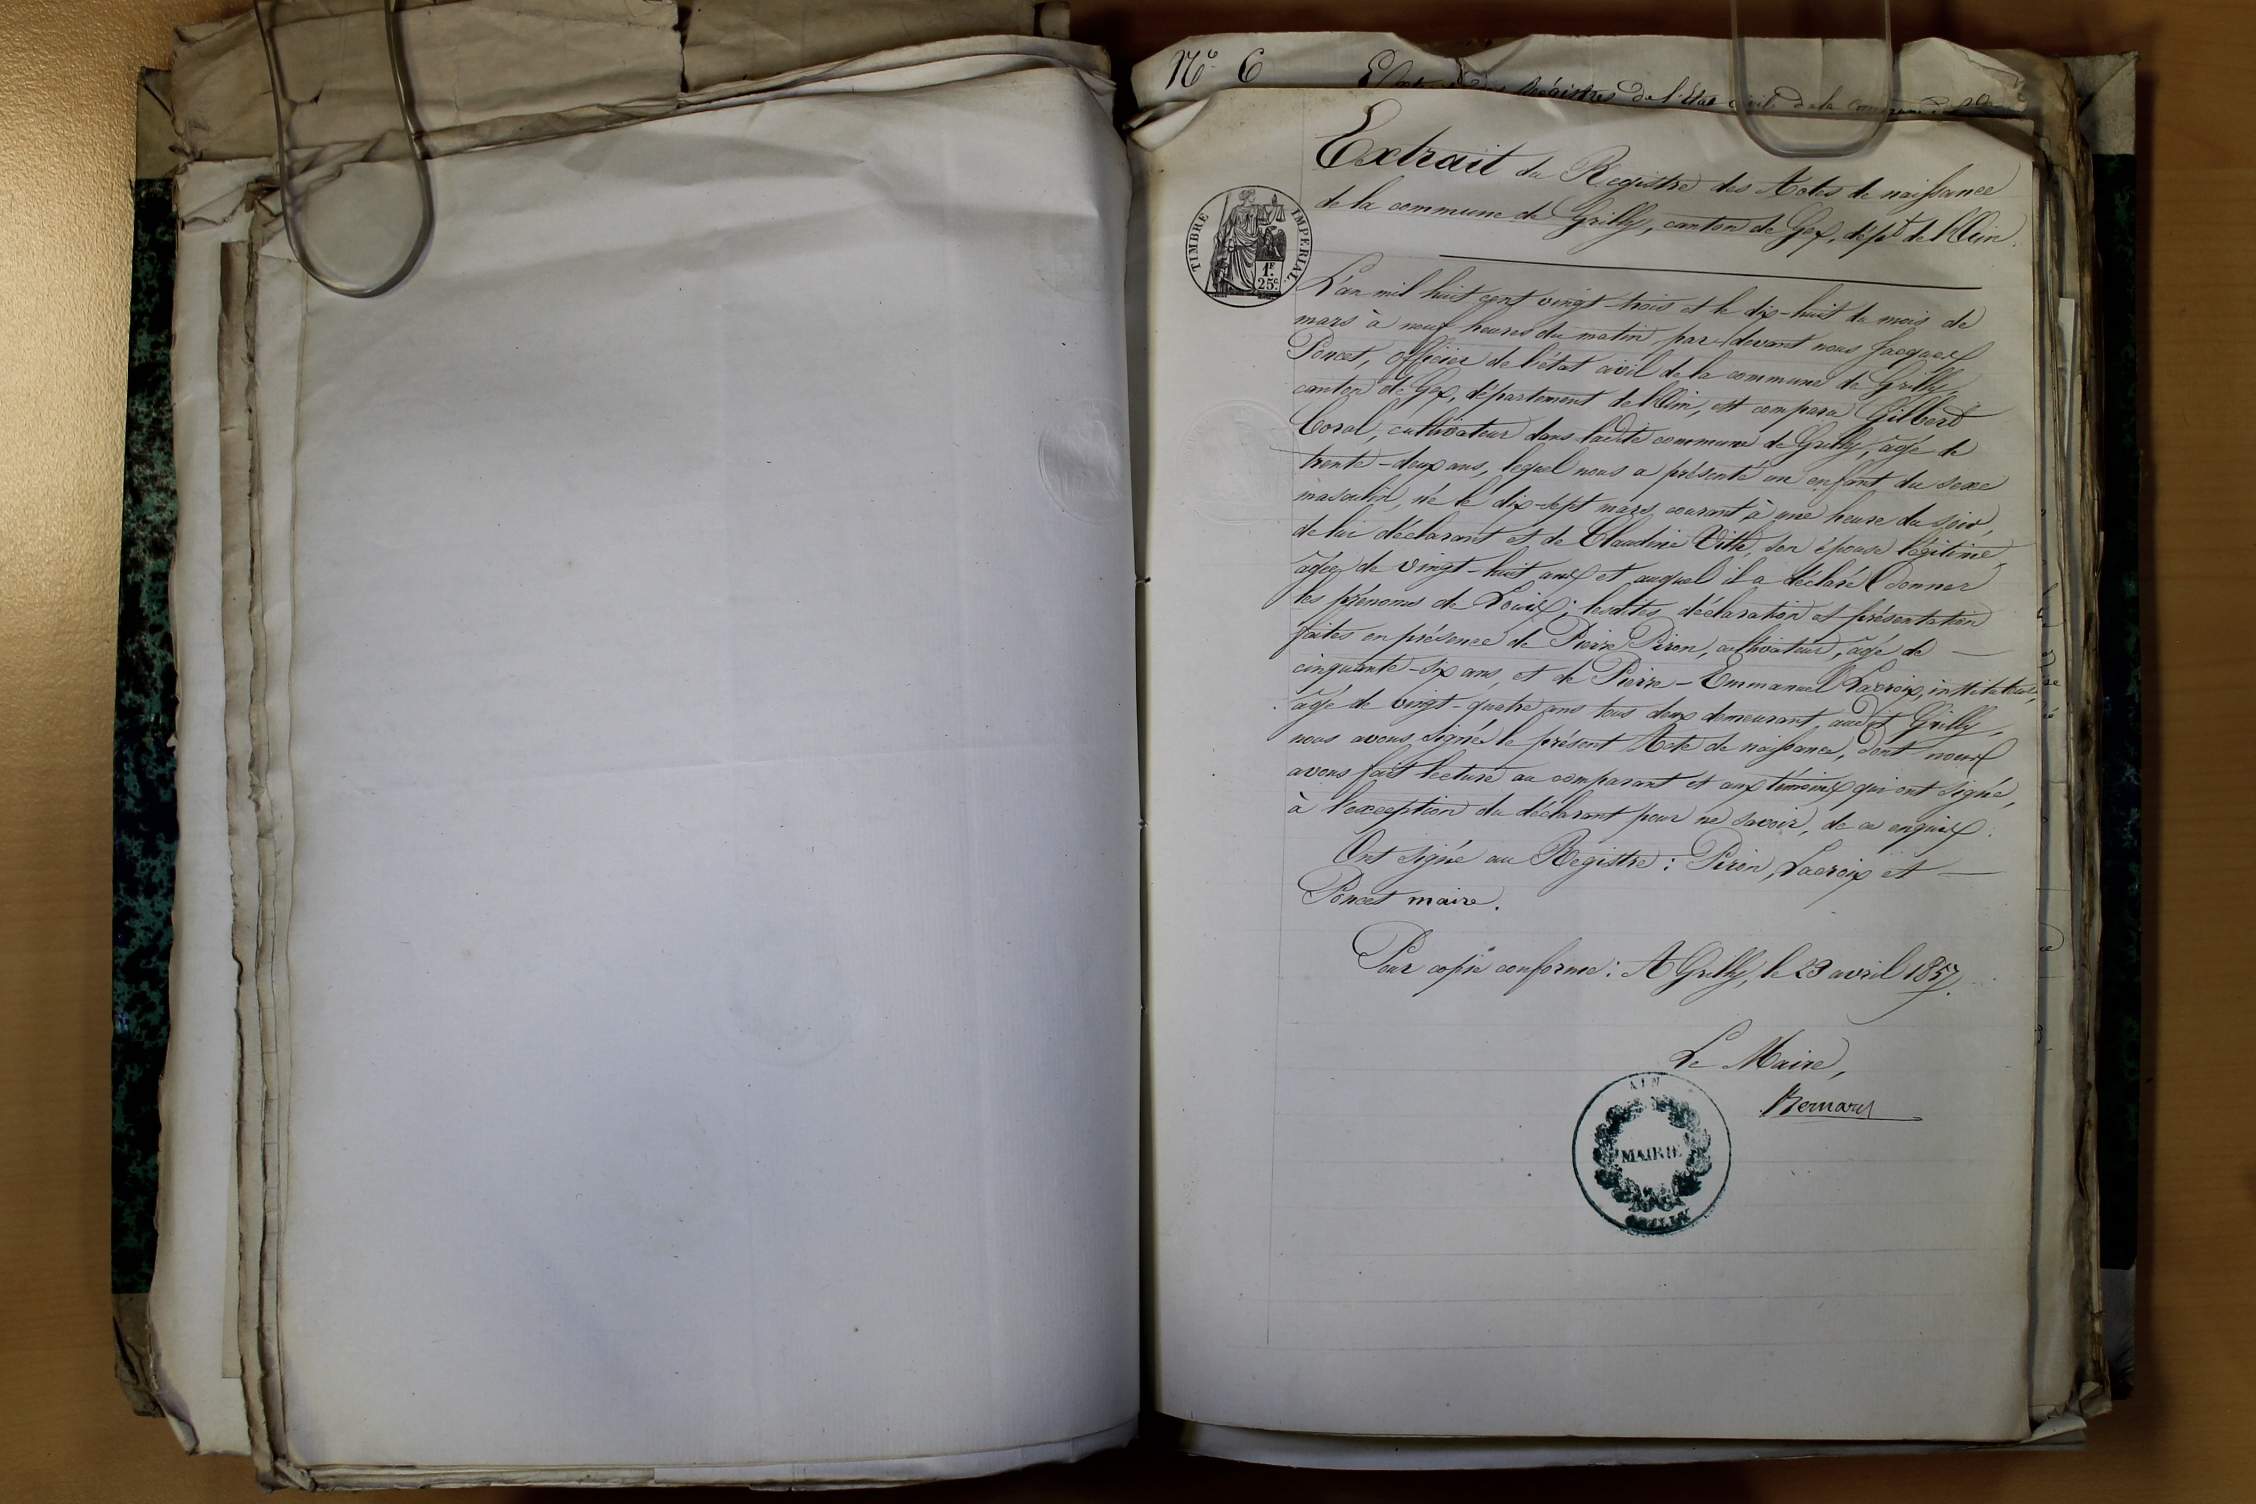 Nº 6
Registres de l'Etat civil de la Commune
Extrait du Registre des Actes de naissance
de la commune de Grilly, canton de Gex, dépt de l'Ain.
TIMBRE IMPERIAL
1F.
25c.
L'an mil huit cent vingt-trois et le dix-huit du mois de
mars à neuf heures du matin, par devant nous Jacques
Poncet, officier de l'état civil de la commune de Grilly
canton de Gex, département de l'Ain, est comparu Gilbert
Coral, cultivateur dans ladite commune de Grilly, âgé de
trente-deux ans, lequel nous a présenté un enfant du sexe
masculin, né le dix-sept mars courant à une heure du soir,
de lui déclarant et de Claudine son épouse légitime,
âgée de vingt-huit ans et auquel il a déclaré donner
les prénoms de Louis; lesdites déclaration et présentation
faites en présence de Pierre Piron, cultivateur, âgé de —
cinquante-six ans, et de Pierre-Emmanuel Lacroix, instituteur,
âgé de vingt-quatre ans tous deux demeurant audit Grilly,
nous avons signé le présent Acte de naissance, dont nous
avons fait lecture au comparant et aux témoins qui ont signé,
à l'exception du déclarant pour ne savoir, de ce enquis.
Ont signé au Registre: Piron, Lacroix et —
Poncet maire.
Pour copie conforme: A Grilly, le 23 avril 1857.
Le Maire,
Bernard
AIN
MAIRIE
GRILLY